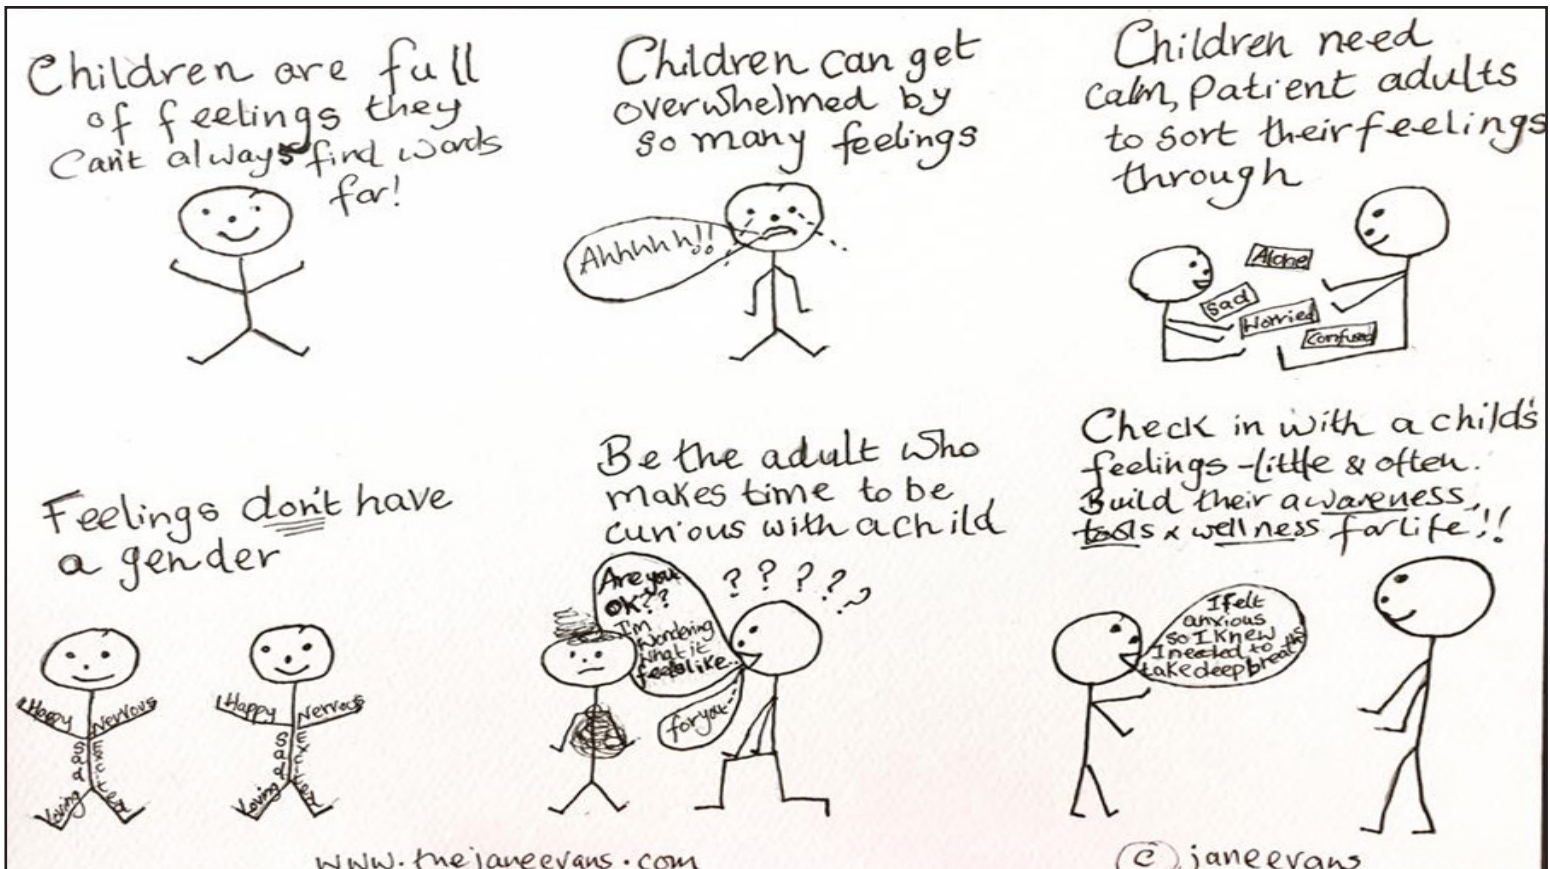 Children are full
of feelings they
Can't always find words
for!
Children can get
overwhelmed by
so many feelings
Ahhhhh!!
Children need
calm, Patient adults
to sort their feelings
through
Alone
Sad
Worried
Confused
Feelings don't have
a gender
Happy Nervous
Sad Excited
Loving
Happy Nervous
Sad Excited
Loving
Be the adult who
makes time to be
curious with a child
Are you
OK??
I'm
wondering
what it
feels like..
for you-
? ? ? ? ?
Check in with a child's
feelings - little & often.
Build their awareness,
tools & wellness for life!!
I felt
anxious
so I knew
I needed to
take deep breaths
www.thejaneevans.com
© janeevans